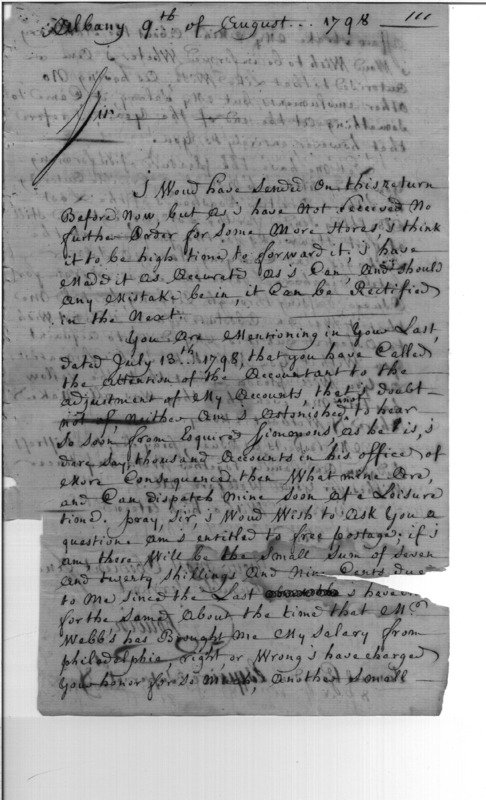 Albany 9th of August... 1798 — 111
Sir
I Woud have Sended On this return
Before Now, but As i have Not received No
furthe Order for some More Stores, i think
it to be high time to forward it; i have
Madd it As Accurets As i Can, And should
Any Mistake be in, it Can be Rectified
in the Next.
You Are Mentioning in Your Last,
dated July 13th 1798, that you have Called
the Attention of the Accountant to the
Adjustment of My Accounts, that i doubt
not of, Neither Am i Astonished, not to hear
So soon from Esquire Simmons, as he is, i
dare say, thousand Accounts in his office of
More Consequence then What mine Are,
and Can dispatch Mine soon At a Leisure
time. pray, Sir, i Woud Wish to Ask You a
questione am i entitled to free postage; if i
am, there Will be the Small Sum of seven
And twenty Shillings And Nin Cents due
to Me since the Last i have
for the Same About the time that Mr
Webb's has Brought Me My Salary from
philadelphia, right or Wrong i have charged
Your honor for so Much, Another Small